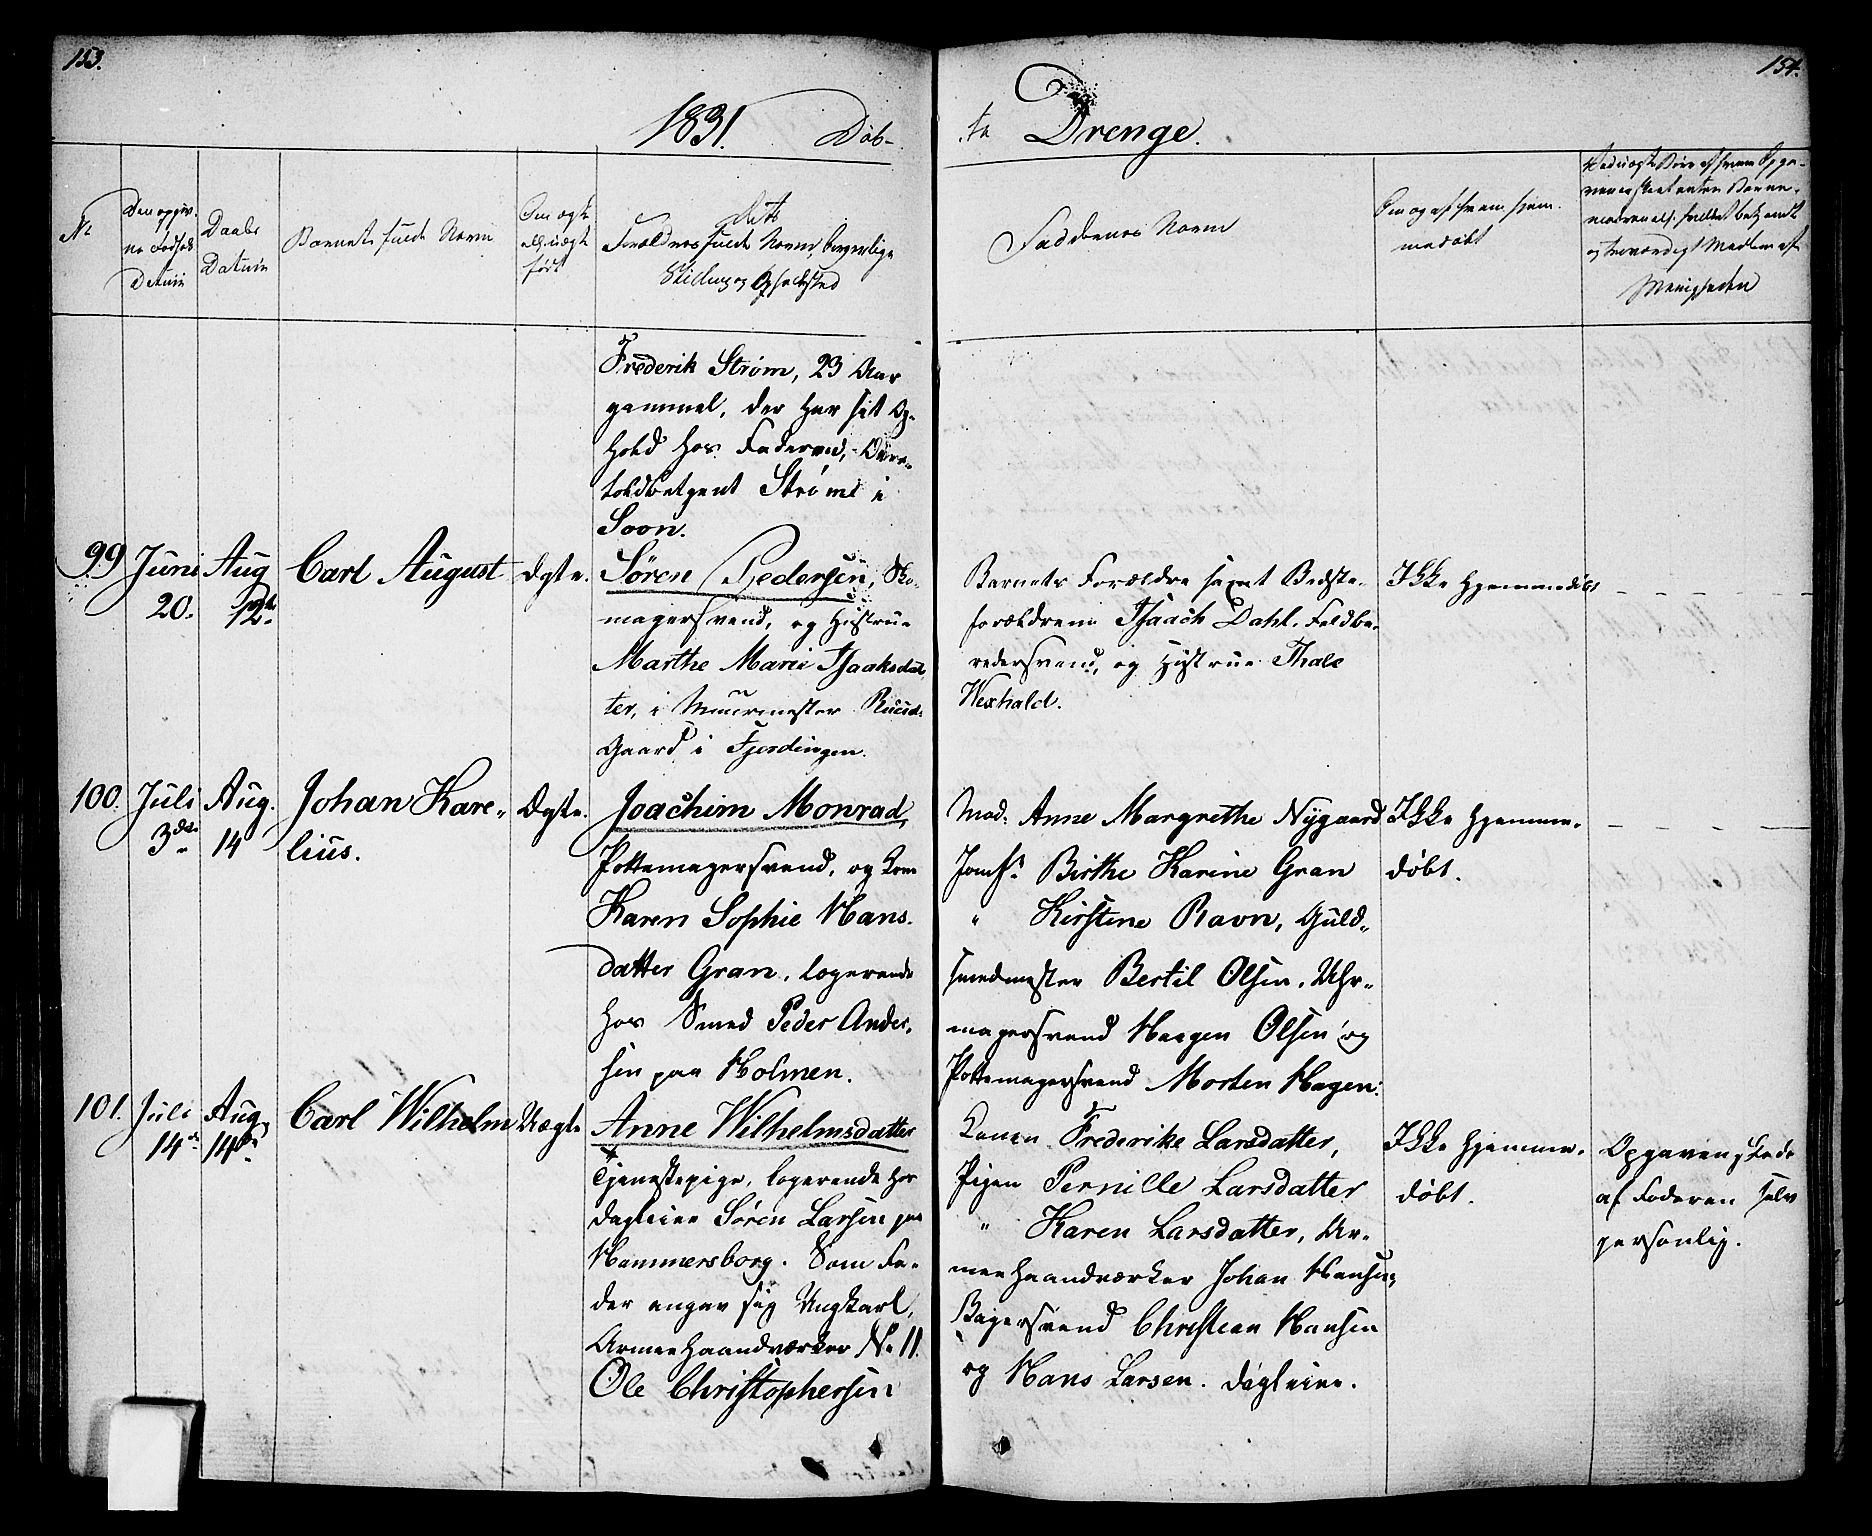 153.
154.
1831. Døb-
te Drenge.
No
Den opgiv.
ne Fødsels
Datum
Daabs
Datum
Barnets fulde Navn
Om ægte
ell. uægte
født
Dets
Forældres fulde Navne, borgerlige
Stilling og Opholdsted
Faddernes Navne
Om og af hvem hjem-
medøbt
Menigheden
Frederik Strøm, 23 Aar
gammel, der har sit Op-
hold hos Faderen, Over-
toldbetjent Strøm i
Soon.
99 Juni
20.
Aug
12te
Carl August
Ægte.
Søren Pedersen, Sko-
magersvend, og Hustrue
Marthe Marie Isaaksdat-
ter, i Muurmester
Gaard i Fjerdingen.
Barnets Forældre samt Bedste-
forældrene Isaach Dahl, Feldbe-
redersvend, og Hustrue Thale
Wexhald.
Ikke hjemmedøbt
100. Juli
3die
Aug.
14
Johan Kare-
lius.
Ægte.
Joachim Monrad,
Pottemagersvend, og Kone
Karen Sophie Hans-
datter Gran, logerende
hos Smed Peder Ander-
sen paa Holmen.
Mad. Anne Margrethe Nygaard
Jomfr Birthe Karine Gran
" Kirstine Ravn, Guld-
smedmester Bertil Olsen, Uhr-
magersvend Haagen Olsen og
Pottemagersvend Morten Hagen.
Ikke hjemme-
døbt.
101. Juli
14de
Aug.
14de
Carl Wilhelm
Uægte
Anne Wilhelmsdatter
Tjenestepige, logerende hos
Dagleier Søren Larsen paa
Hammersborg. Som Fa-
der angav sig Ungkarl,
Armeehaandværker No 11.
Ole Christophersen
Konen Frederike Larsdatter,
Pigen Pernille Larsdatter
" Karen Larsdatter, Ar-
meehaandværker Johan Hansen,
Bagersvend Christian Hansen
og Hans Larsen. Dagleier.
Ikke hjemme-
døbt.
Opgaven skede
af Faderen selv
personlig.